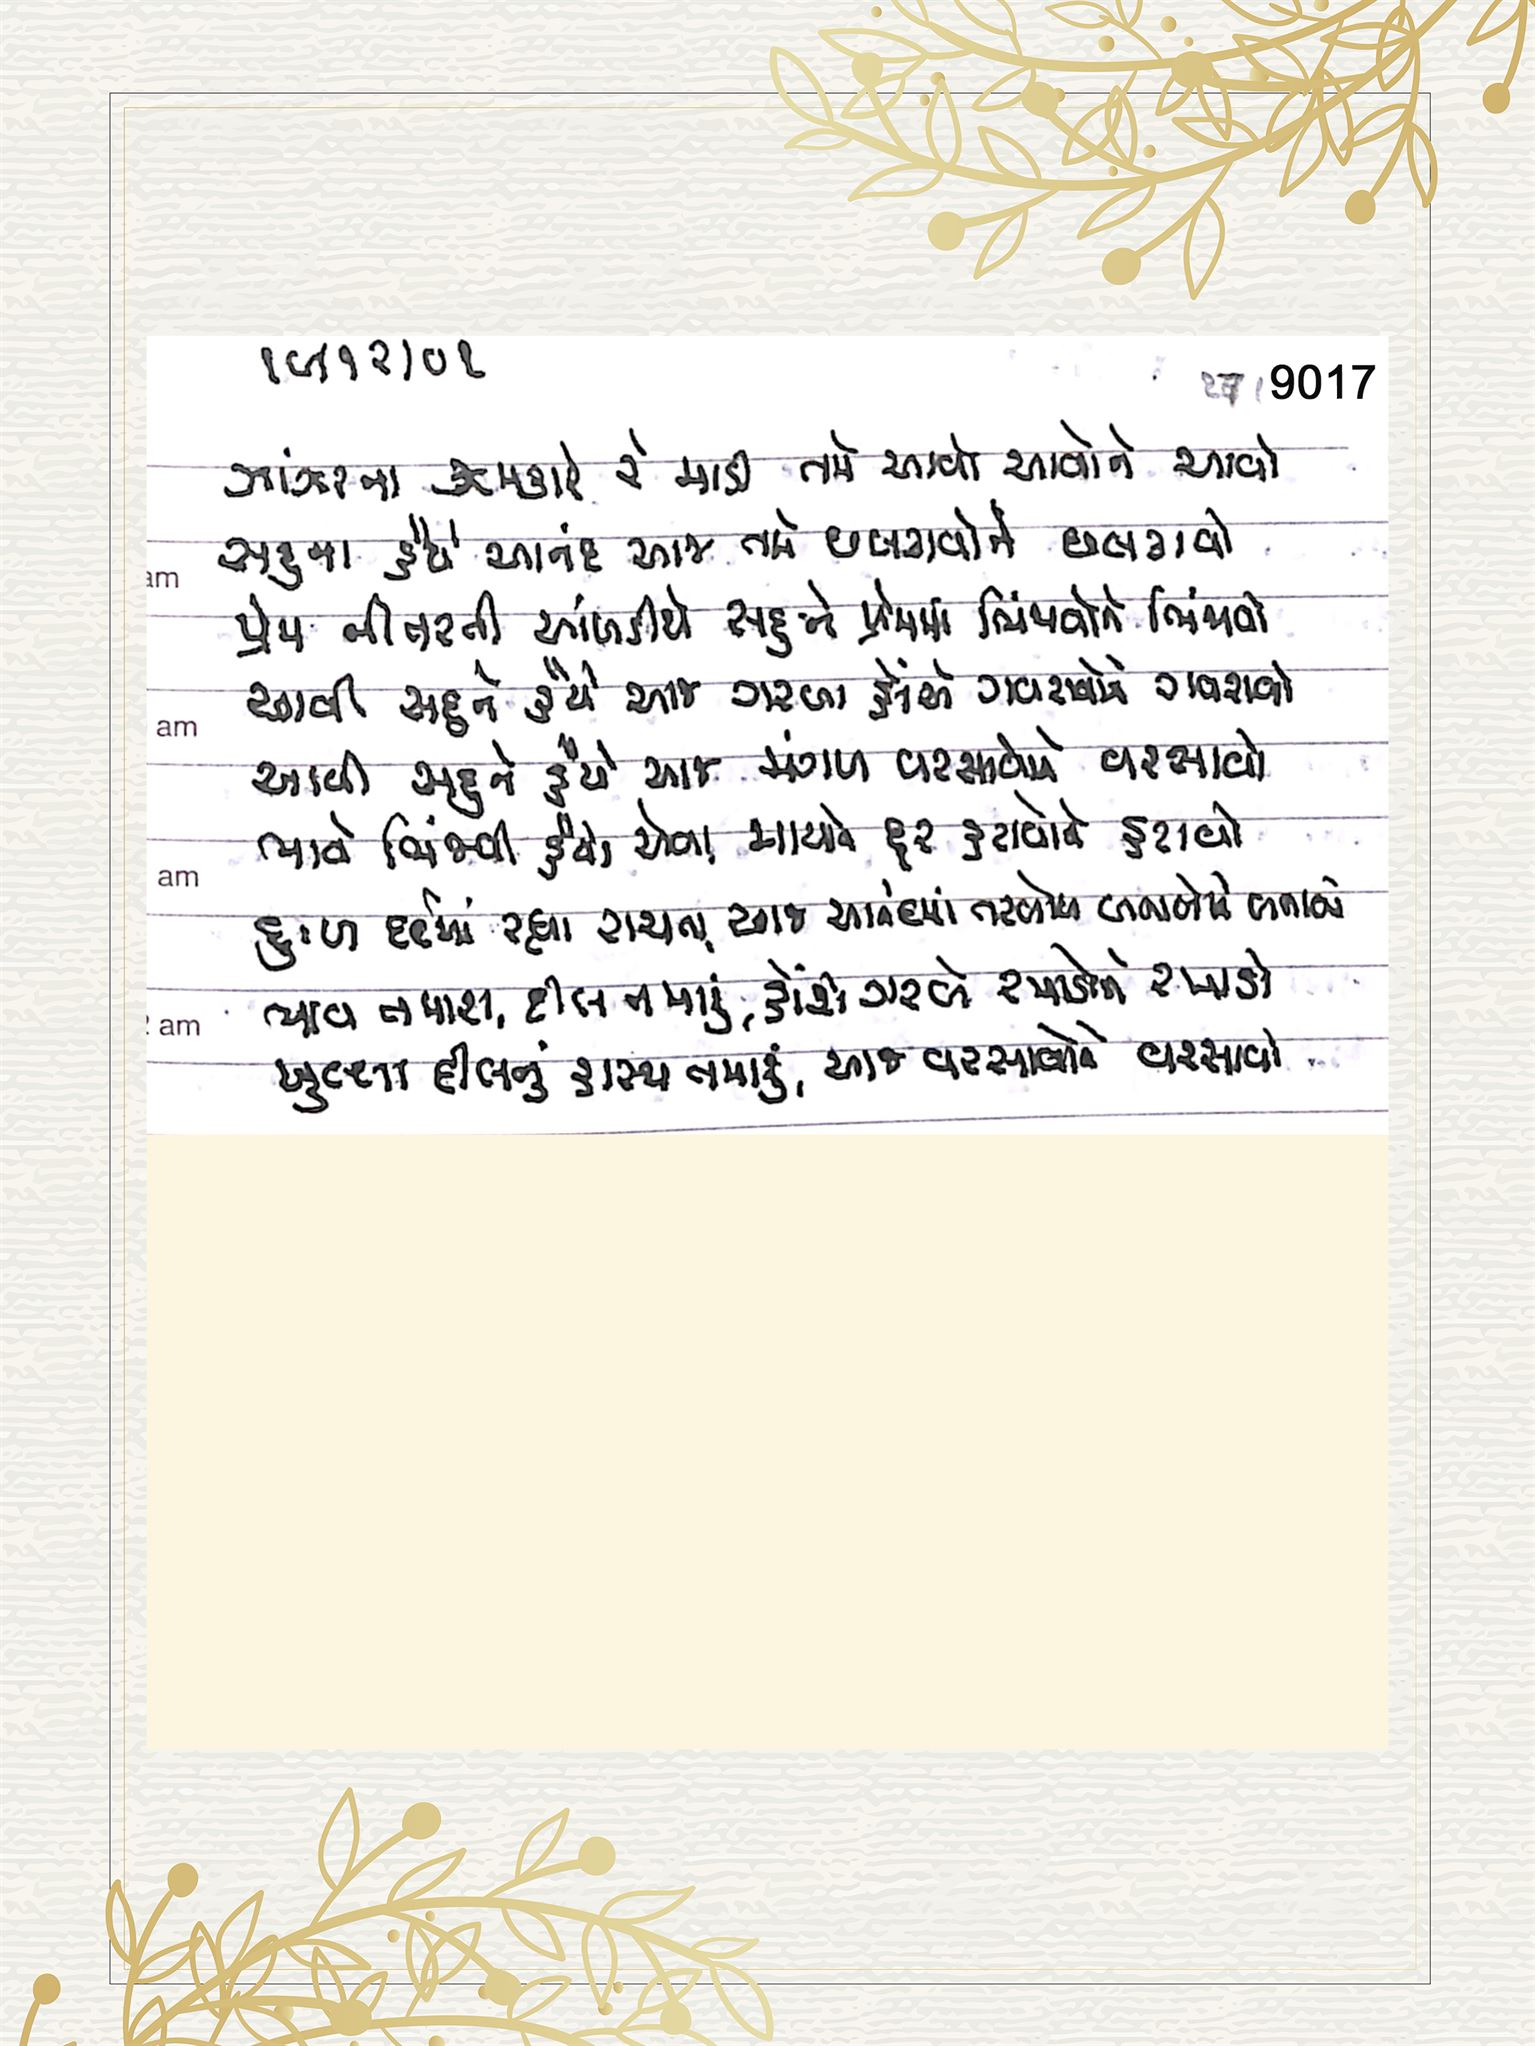 9017
ઝાંઝરના ઝમકારે રે માડી તમે આવો આવોને આવો
સહુના હૈયે આનંદ આજ તમે છલકાવોને છલકાવો
પ્રેમ નીતરતી આંખડીયે સહુને પ્રેમમાં ભિંજવોને ભિંજવો
આવી સહુને હૈયે આજ ગરબા હોંશે ગવરાવોને ગવરાવો
આવી સહુને હૈયે આજ મંગળ વરસાવોને વરસાવો
ભાવે ભિંજવી હૈયે એવા માયાને દૂર હટાવોને હટાવો
દુઃખ દર્દમાં રહ્યા રાચતા, આજ આનંદમાં તરબોળ બનાવોને બનાવો
ભાવ તમારા, દીલ તમારું, હોંશે ગરબે રમાડોને રમાડો
ખુલ્લા દીલનું હાસ્ય તમારું, આજ વરસાવોને વરસાવો
am
am
am
am